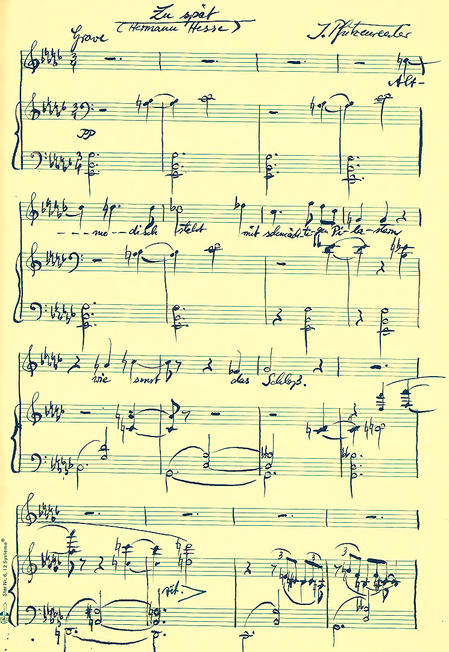 Zu spät
(Hermann Hesse)
Grave
Alt-
pp
- - - mo - - disch steht mit schmächti-gen Pi-la-stern
wie sonst das Schloß.
rit.
Star Nr. 6, 12 Systeme